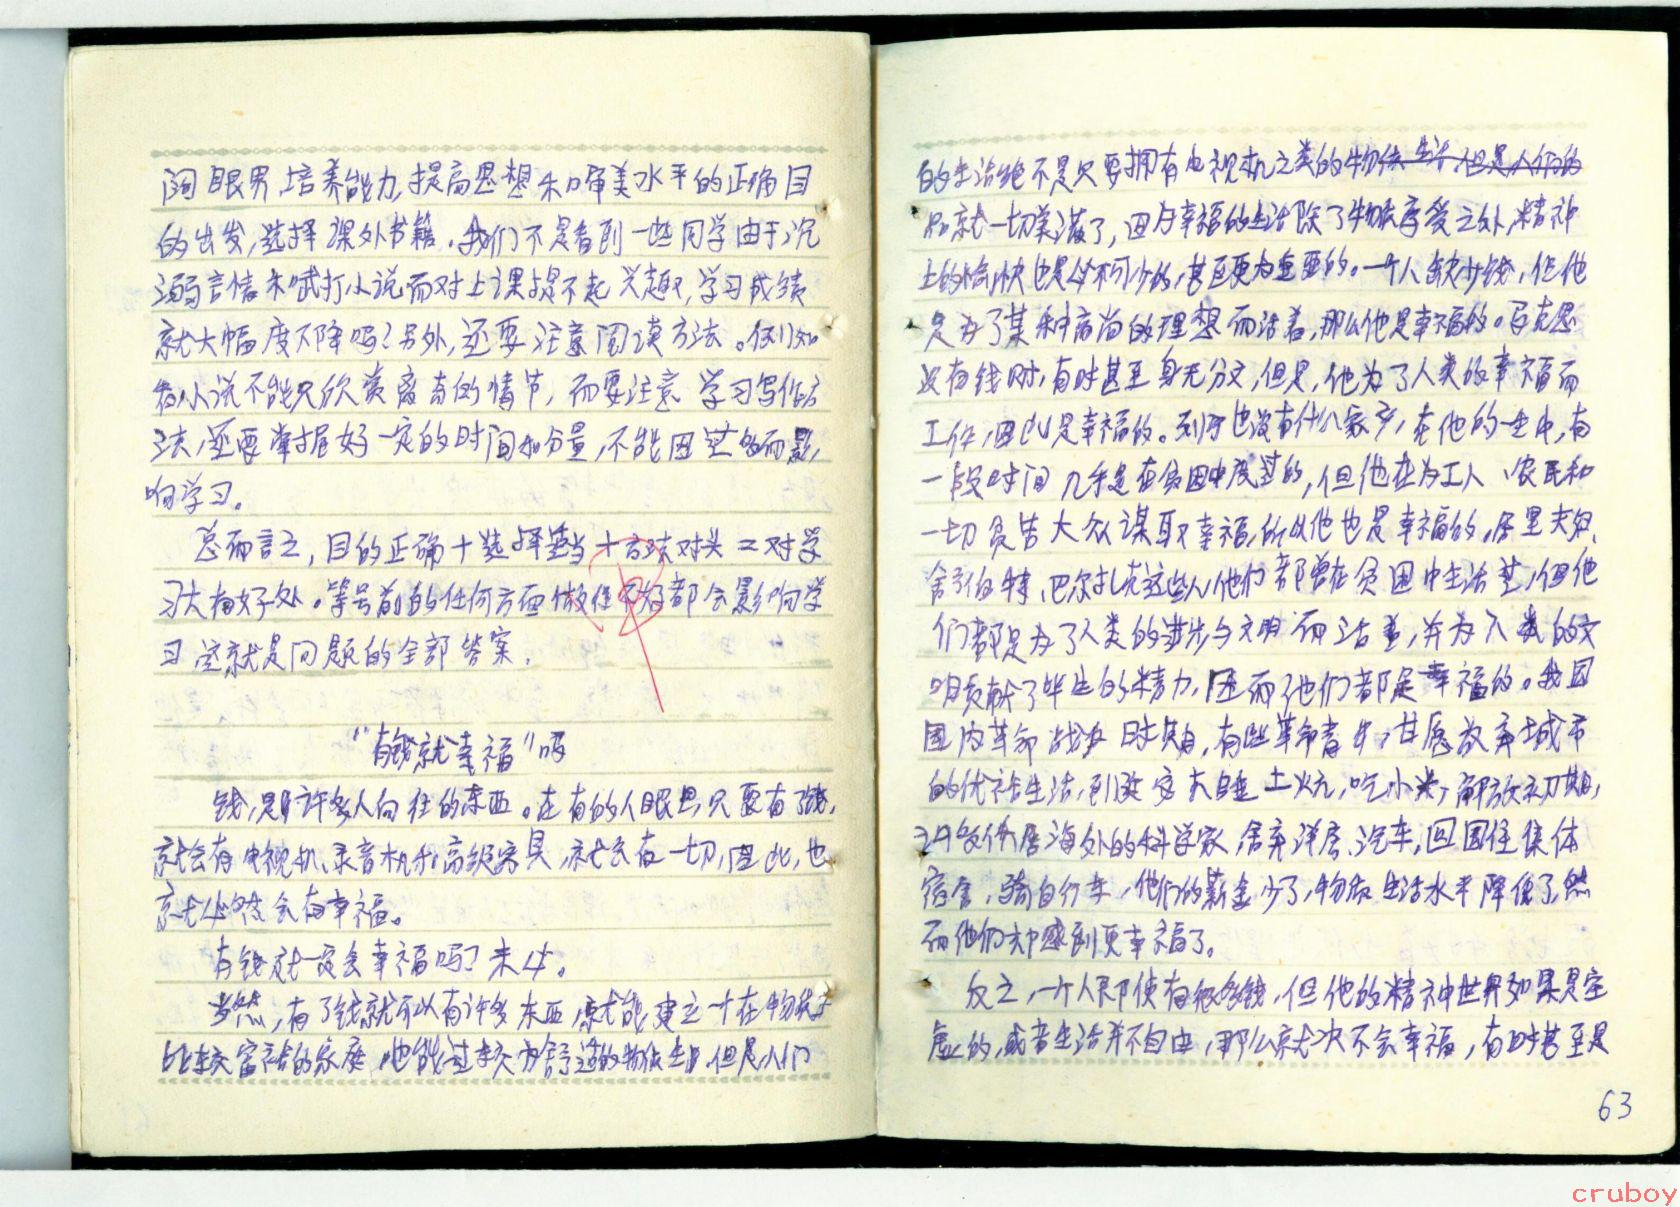 阔眼界培养能力,提高思想和审美水平的正确目
的出发,选择课外书籍。我们不是看到一些同学由于沉
溺言情和武打小说而对上课提不起兴趣,学习成绩
就大幅度下降吗?另外,还要注意阅读方法。例如
看小说不能只欣赏离奇的情节,而要注意学习写作方
法,还要掌握好一定的时间和分量,不能因过多而影
响学习。
总而言之,目的正确+选择适当+方法对头=对学
习大有好处。等号前的任何方面做得不好都会影响学
习这就是问题的全部答案。
"有钱就幸福"吗
钱,是许多人向往的东西。在有的人眼里,只要有了钱,
就会有电视机、录音机和高级家具,就会有一切,因此,也
就必然会有幸福。
有钱就一定会幸福吗?未必。
当然,有了钱就可以有许多东西,就能建立一个在物质上
比较富裕的家庭,也能过较为舒适的物质生活,但是,人们
的生活绝不是只要拥有电视机之类的物质生活,但是人们的
品就一切美满了,因为幸福的生活除了物质享受之外,精神
上的愉快也是必不可少的,甚至更为重要的。一个人缺少钱,但他
是为了某种高尚的理想而活着,那么他是幸福的。马克思
没有钱时,有时甚至身无分文,但是,他为了人类的幸福而
工作,因此是幸福的。列宁也没有什么家产,在他的一生中,有
一段时间几乎是在贫困中度过的,但他在为工人、农民和
一切负苦大众谋取幸福,所以他也是幸福的。居里夫妇、
舒伯特、巴尔扎克这些人,他们都曾在贫困中生活过,但他
们都是为了人类的进步与文明而活着,并为人类的文
明贡献了毕生的精力,因而他们都是幸福的。我国
国内革命战争时期,有些革命青年,甘愿放弃城市
的优裕生活,到延安去睡土炕,吃小米,解放初期,
许多侨居海外的科学家,舍弃洋房、汽车,回国住集体
宿舍,骑自行车,他们的薪金少了,物质生活水平降低了,然
而他们却感到更幸福了。
反之,一个人即使有很多钱,但他的精神世界如果是空
虚的,或者生活并不自由,那么就决不会幸福,有时甚至是
63
cruboy